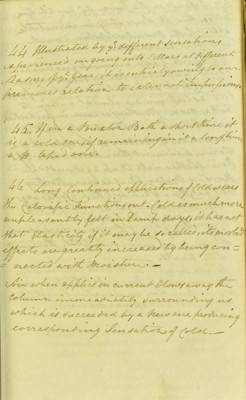 44 Illustrated by ye different sensations
experienced on going into Cellars at different
Seasons of ye year, it is entirely owing to our
previous relation to external impressions.
45. If in a Buxton Bath a short time it
is a cold sense, if remaining in it a long time
a
46 Long continued applications of Cold wears
the Calorific functions out. Cold is much more
unpleasantly felt in Damp days, it has not
that elasticity if it may be so called, its morbid
effects are greatly increased by being con=
=nected with Moisture.—
Air when applied in current blows away the
Column immediately surrounding us
which is succeeded by a new one producing
corresponding Sensation of Cold.—